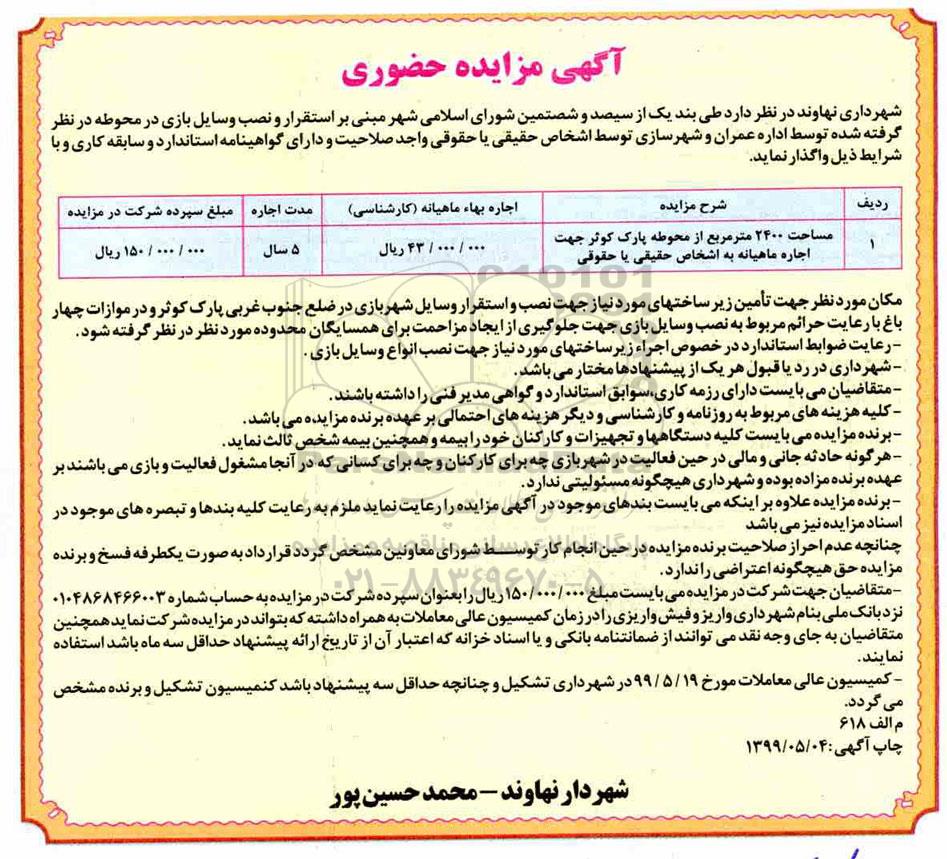 آگهی مزایده حضوری
شهرداری نهاوند در نظر دارد طی بند یک از سیصد و شصتمین شورای اسلامی شهر مبنی بر استقرار و نصب وسایل بازی در محوطه در نظر
گرفته شده توسط اداره عمران و شهرسازی توسط اشخاص حقیقی یا حقوقی واجد صلاحیت و دارای گواهینامه استاندارد و سابقه کاری و با
شرایط ذیل واگذار نماید.
ردیف شرح مزایده اجاره بهاء ماهیانه (کارشناسی) مدت اجاره مبلغ سپرده شرکت در مزایده
۱ مساحت ۲۴۰۰ مترمربع از محوطه پارک کوثر جهت اجاره ماهیانه به اشخاص حقیقی یا حقوقی ۴۳/۰۰۰/۰۰۰ ریال ۵ سال ۱۵۰/۰۰۰/۰۰۰ ریال
مکان مورد نظر جهت تأمین زیر ساختهای مورد نیاز جهت نصب و استقرار وسایل شهربازی در ضلع جنوب غربی پارک کوثر و در موازات چهار
باغ با رعایت حرائم مربوط به نصب وسایل بازی جهت جلوگیری از ایجاد مزاحمت برای همسایگان محدوده مورد نظر در نظر گرفته شود.
-رعایت ضوابط استاندارد در خصوص اجراء زیر ساختهای مورد نیاز جهت نصب انواع وسایل بازی.
-شهرداری در رد یا قبول هر یک از پیشنهادها مختار می باشد.
-متقاضیان می بایست دارای رزمه کاری،سوابق استاندارد و گواهی مدیر فنی را داشته باشند.
-کلیه هزینه های مربوط به روزنامه و کارشناسی و دیگر هزینه های احتمالی بر عهده برنده مزایده می باشد.
-برنده مزایده می بایست کلیه دستگاهها و تجهیزات و کارکنان خود را بیمه و همچنین بیمه شخص ثالث نماید.
-هرگونه حادثه جانی و مالی در حین فعالیت در شهربازی چه برای کارکنان و چه برای کسانی که در آنجا مشغول فعالیت و بازی می باشند بر
عهده برنده مزاده بوده و شهرداری هیچگونه مسئولیتی ندارد.
-برنده مزایده علاوه بر اینکه می بایست بندهای موجود در آگهی مزایده را رعایت نماید ملزم به رعایت کلیه بندها و تبصره های موجود در
اسناد مزایده نیز می باشد
چنانچه عدم احراز صلاحیت برنده مزایده در حین انجام کار توسط شورای معاونین مشخص گردد قرارداد به صورت یکطرفه فسخ و برنده
مزایده حق هیچگونه اعتراضی را ندارد.
-متقاضیان جهت شرکت در مزایده می بایست مبلغ ۱۵۰/۰۰۰/۰۰۰ریال را بعنوان سپرده شرکت در مزایده به حساب شماره ۰۱۰۴۸۶۸۴۶۶۰۰۳
نزد بانک ملی بنام شهرداری واریز و فیش واریزی را در زمان کمیسیون عالی معاملات به همراه داشته که بتواند در مزایده شرکت نماید همچنین
متقاضیان به جای وجه نقد می توانند از ضمانتنامه بانکی و یا اسناد خزانه که اعتبار آن از تاریخ ارائه پیشنهاد حداقل سه ماه باشد استفاده
نمایند.
-کمیسیون عالی معاملات مورخ ۹۹/۵/۱۹ در شهرداری تشکیل و چنانچه حداقل سه پیشنهاد باشد کنمیسیون تشکیل و برنده مشخص
می گردد.
م الف ۶۱۸
چاپ آگهی:۱۳۹۹/۰۵/۰۴
شهردار نهاوند – محمد حسین پور
پایگاه اطلاع رسانی مناقصه و مزایده
۰۲۱-۸۸۳۴۹۶۷۰-۵